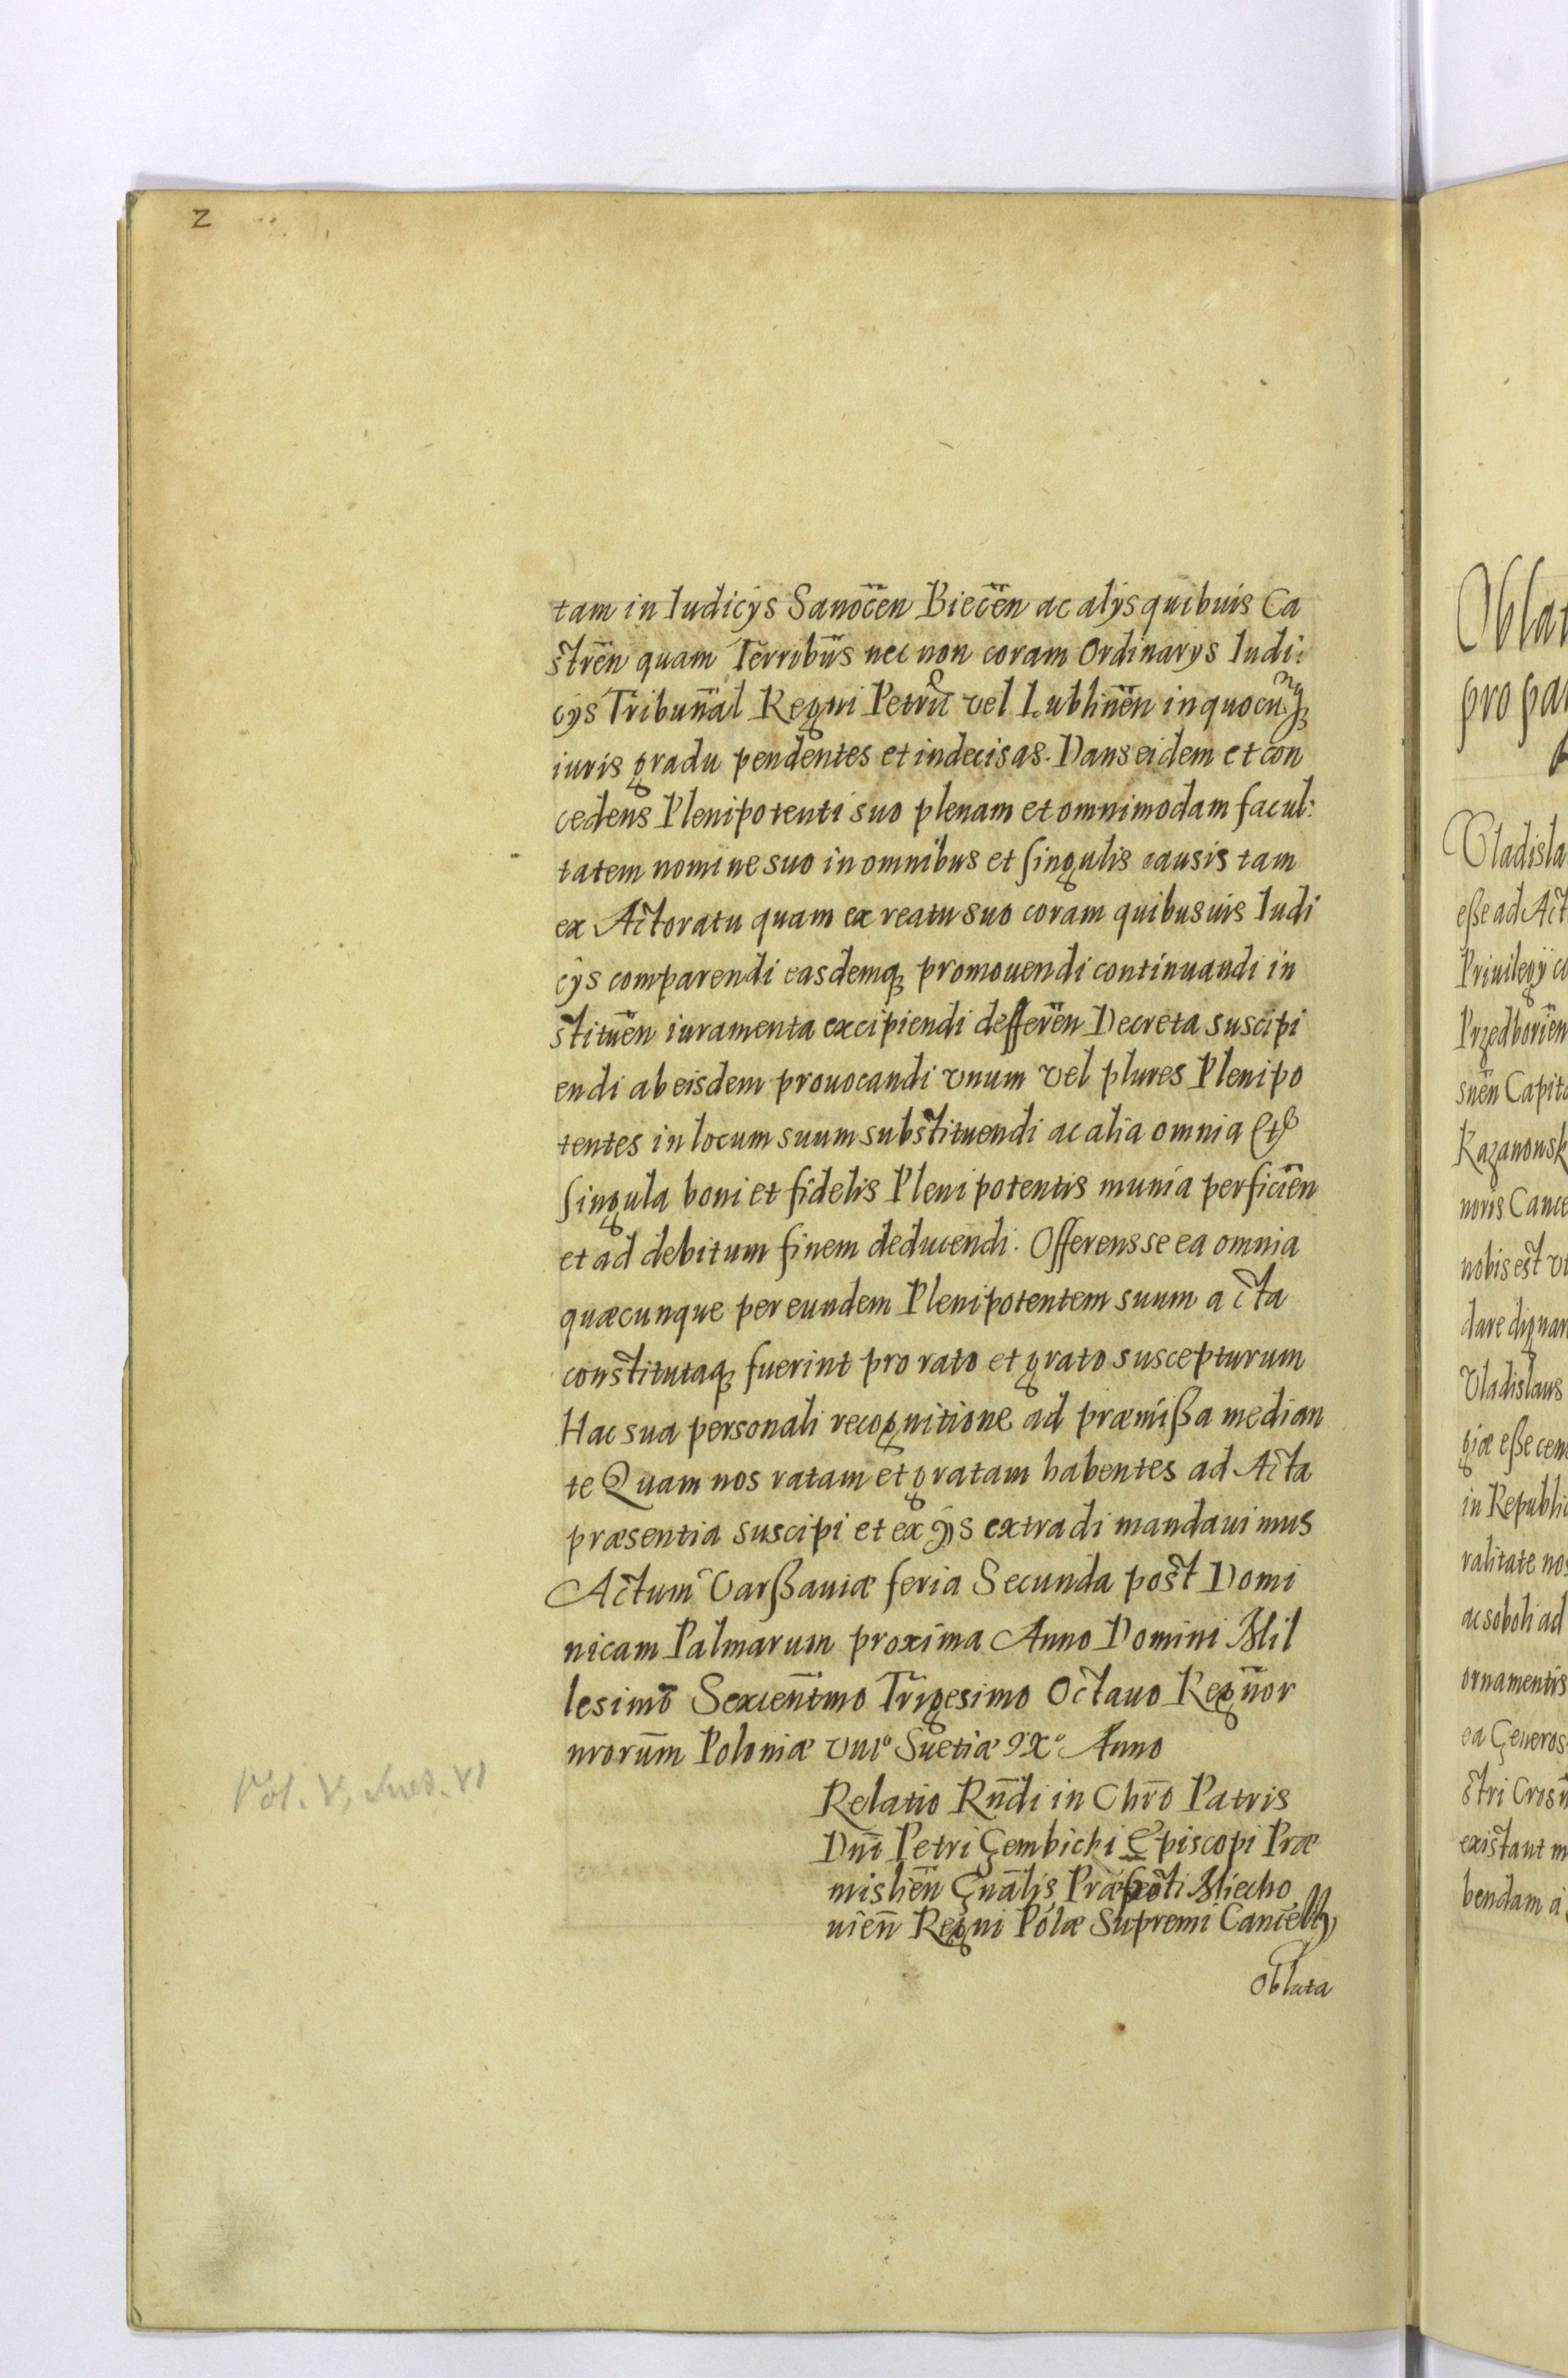 2
tam in Iudicÿs Sanoc̃en Biec̃en ac alÿs quibuis Ca
strẽn quam Terribũs nec non coram Ordinarÿs Iudi:
cÿs Tribun̄al Regni Petrũ vel Lublinẽn in quocunq
iuris gradu pendentes et indecisas. Dans eidem et con
cedens Plenipotenti suo plenam et omnimodam facul:
tatem nomine suo in omnibus et singulis causis tam
ex Actoratu quam ex reatu suo coram quibusuis Iudi
cÿs comparendi easdemq promouendi continuandi in
stituẽn iuramenta excipiendi defferẽn Decreta suscipi
endi ab eisdem prouocandi vnum vel plures Plenipo
tentes in locum suum substituendi ac alia omnia et
singula boni et fidelis Plenipotentis munia perficiẽn
et ad debitum finem deducendi. Offerens se ea omnia
quæcunque per eundem Plenipotentem suum acta
constitutaq fuerint pro rato et grato suscepturum
Hac sua personali recognitione ad præmißa median
te Quam nos ratam et gratam habentes ad Acta
præsentia suscipi et ex ÿs extradi mandauimus
Actum Varßauiæ feria Secunda post Domi
nicam Palmarum proxima Anno Domini Mil
lesimo Sexcen̄tmo Trigesimo Octauo Regn̄or
nrorum̄ Poloniæ Suetiæ Anno
Relatio Rn̄di in Chr̄o Patris
Dn̄i Petri Gembichi Episcopi Præ
mislien̄ Gn̄alis Præpoti Miecho
uien̄ Regni Polæ Supremi Cancell
Oblata
Oblat
pro par
Vladisla
eße ad Act
Priuilegÿ co
Przedboriẽn
snẽn Capita
Kazanowsk
noris Cance
nobis est vt
dare dignar
Vladislaus
giæ eße cen
in Republic
ralitate nos
ac soboli ad
ornamentis
ea Generos
stri Crosn
existant m
bendam a